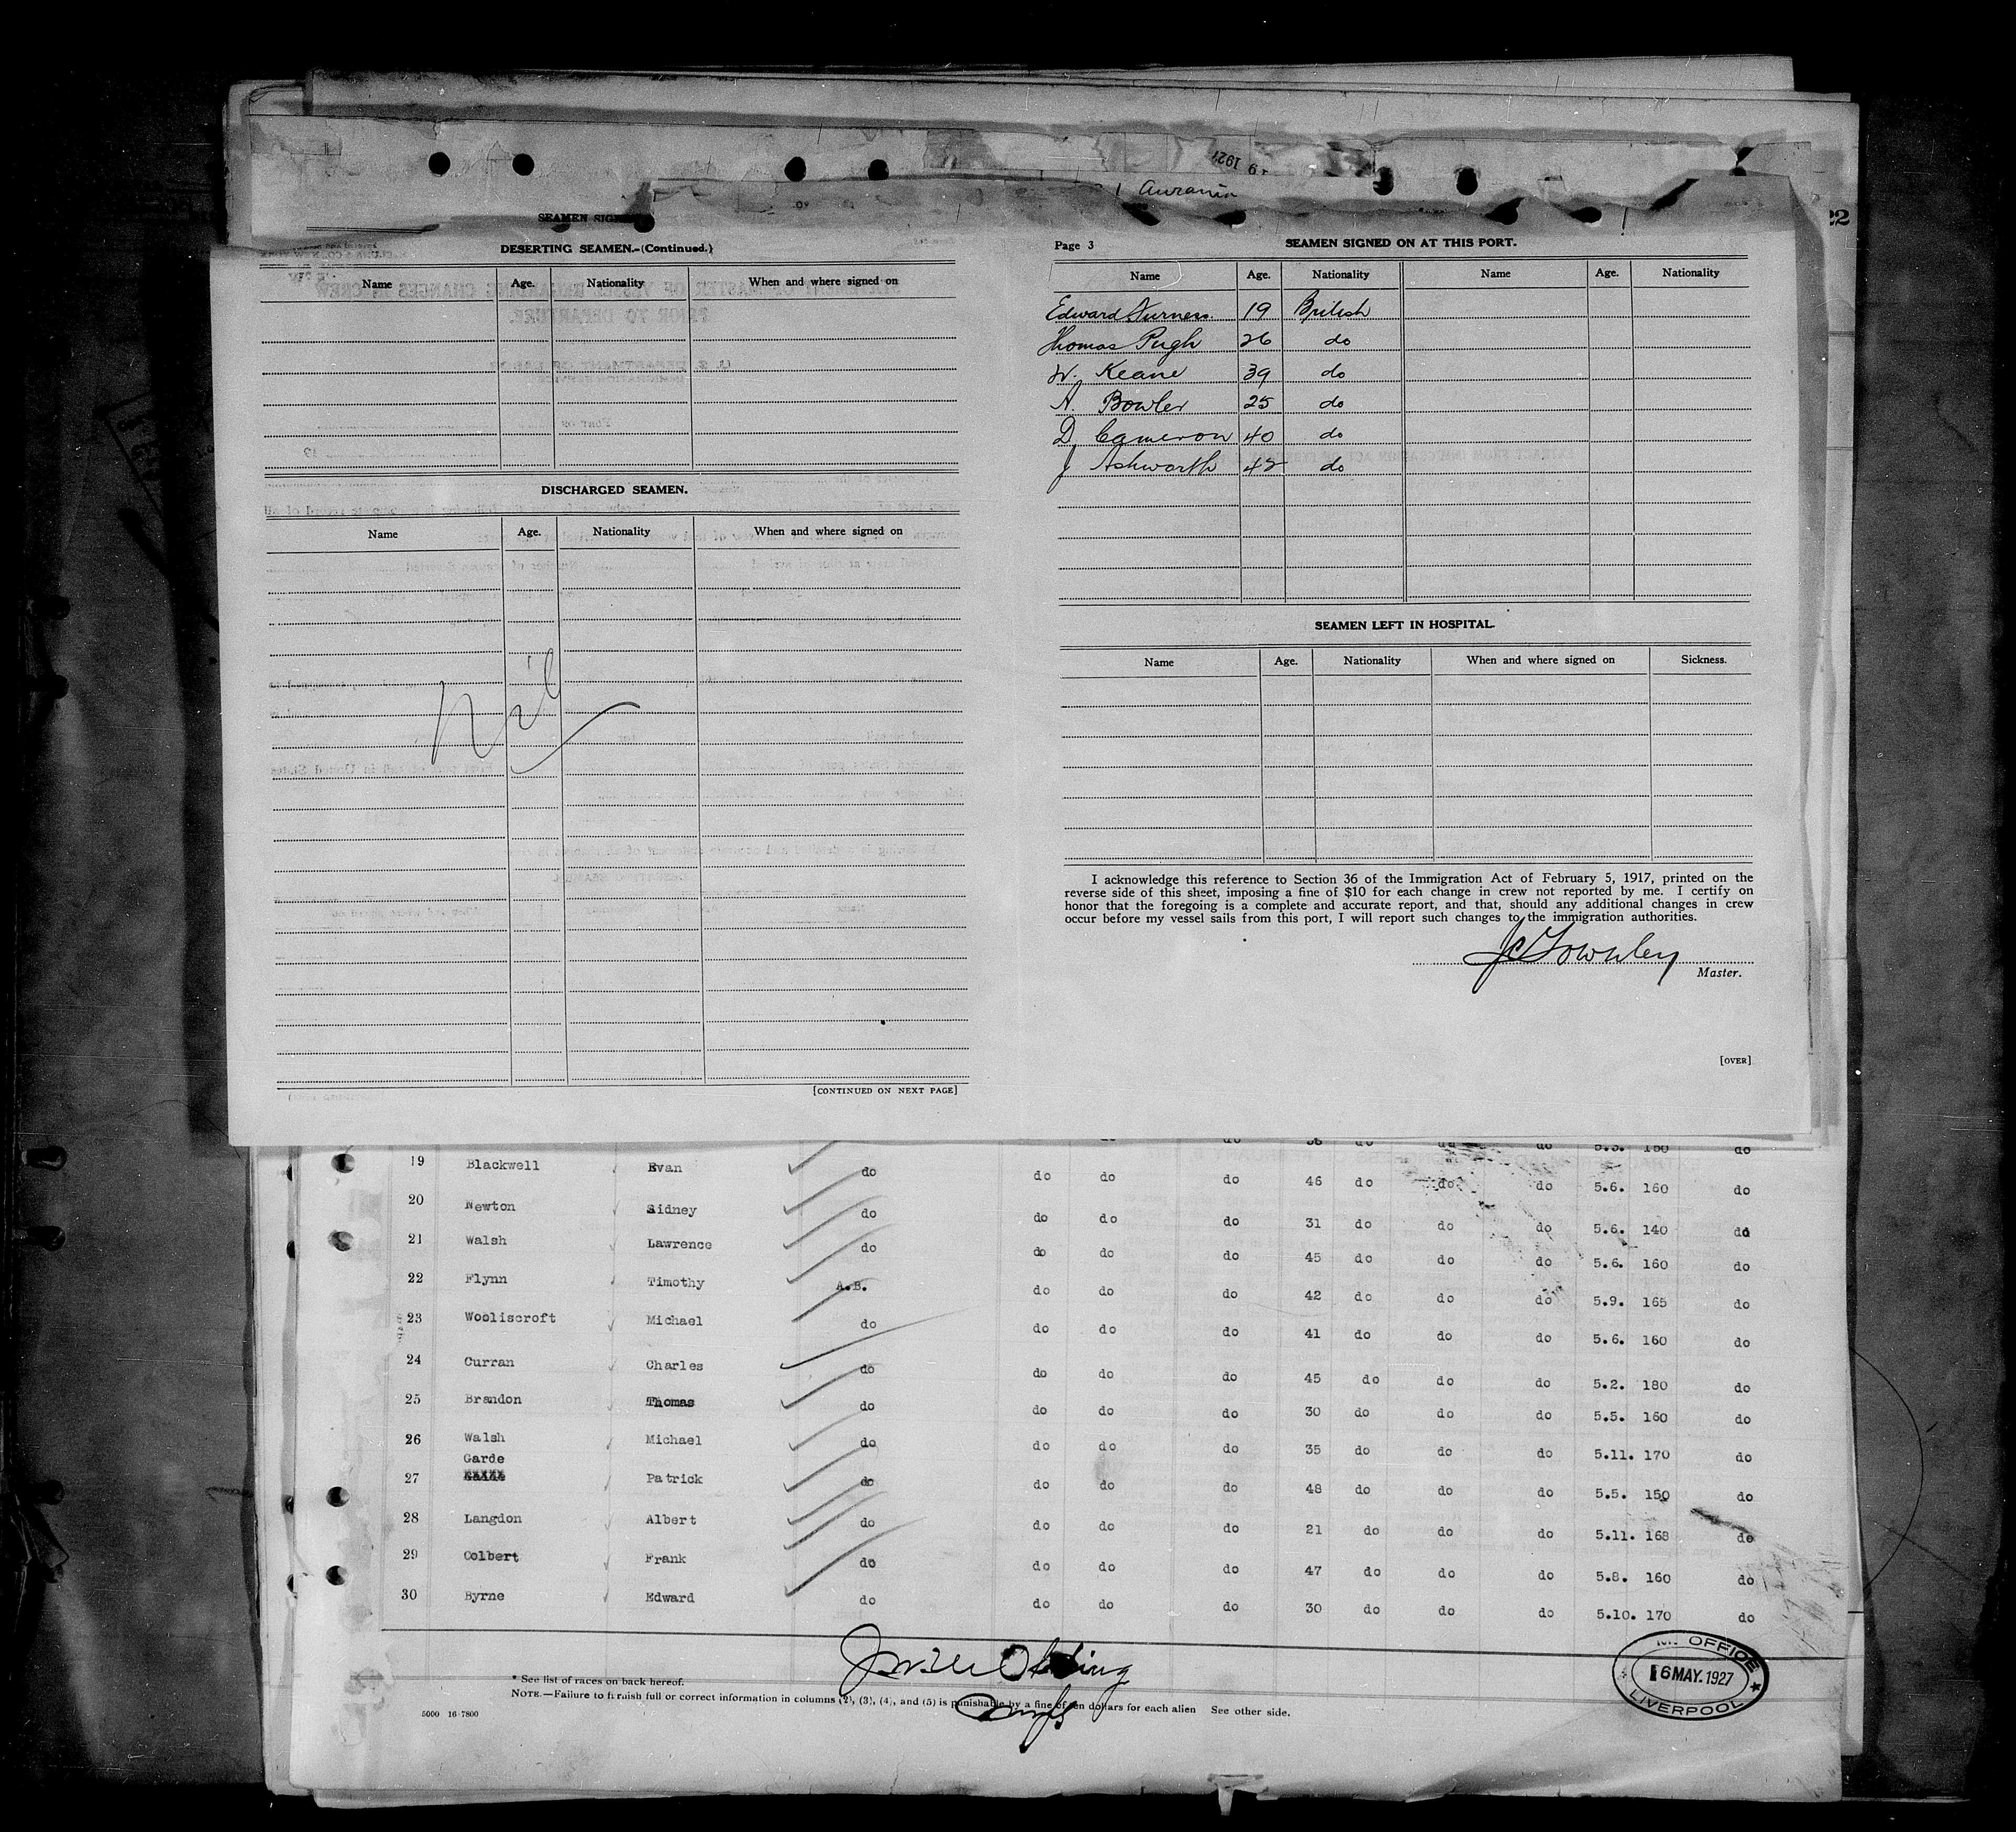 19 1927
Aurania
SEAMEN SIG
DESERTING SEAMEN.-(Continued.)
Name Age. Nationality When and where signed on
DISCHARGED SEAMEN.
Name Age. Nationality When and where signed on
Nil
[CONTINUED ON NEXT PAGE]
22
Page 3 SEAMEN SIGNED ON AT THIS PORT.
Name Age. Nationality Name Age. Nationality
Edward Furness. 19 British
Thomas Pugh 26 do
W. Keane 39 do
A. Bowler 25 do
D. Cameron 40 do
J Ashworth 42 do
SEAMEN LEFT IN HOSPITAL.
Name Age. Nationality When and where signed on Sickness.
I acknowledge this reference to Section 36 of the Immigration Act of February 5, 1917, printed on the
reverse side of this sheet, imposing a fine of $10 for each change in crew not reported by me. I certify on
honor that the foregoing is a complete and accurate report, and that, should any additional changes in crew
occur before my vessel sails from this port, I will report such changes to the immigration authorities.
JCTownley
Master.
[OVER]
19 Blackwell Evan do do do do 46 do do do 5.6. 160 do
20 Newton Sidney do do do do 31 do do do 5.6. 140 do
21 Walsh Lawrence do do do do 45 do do do 5.6. 160 do
22 Flynn Timothy A.B. do do do 42 do do do 5.9. 165 do
23 Wooliscroft Michael do do do do 41 do do do 5.6. 160 do
24 Curran Charles do do do do 45 do do do 5.2. 180 do
25 Brandon Thomas do do do do 30 do do do 5.5. 160 do
26 Walsh Michael do do do do 35 do do do 5.11. 170 do
Garde
27 Patrick do do do do 48 do do do 5.5. 150 do
28 Langdon Albert do do do do 21 do do do 5.11. 168 do
29 Colbert Frank do do do do 47 do do do 5.8. 160 do
30 Byrne Edward do do do do 30 do do do 5.10. 170 do
* See list of races on back hereof.
NOTE.—Failure to furnish full or correct information in columns (2), (3), (4), and (5) is punishable by a fine of ten dollars for each alien See other side.
5000 16-7800
OFFICE
16 MAY. 1927
LIVERPOOL